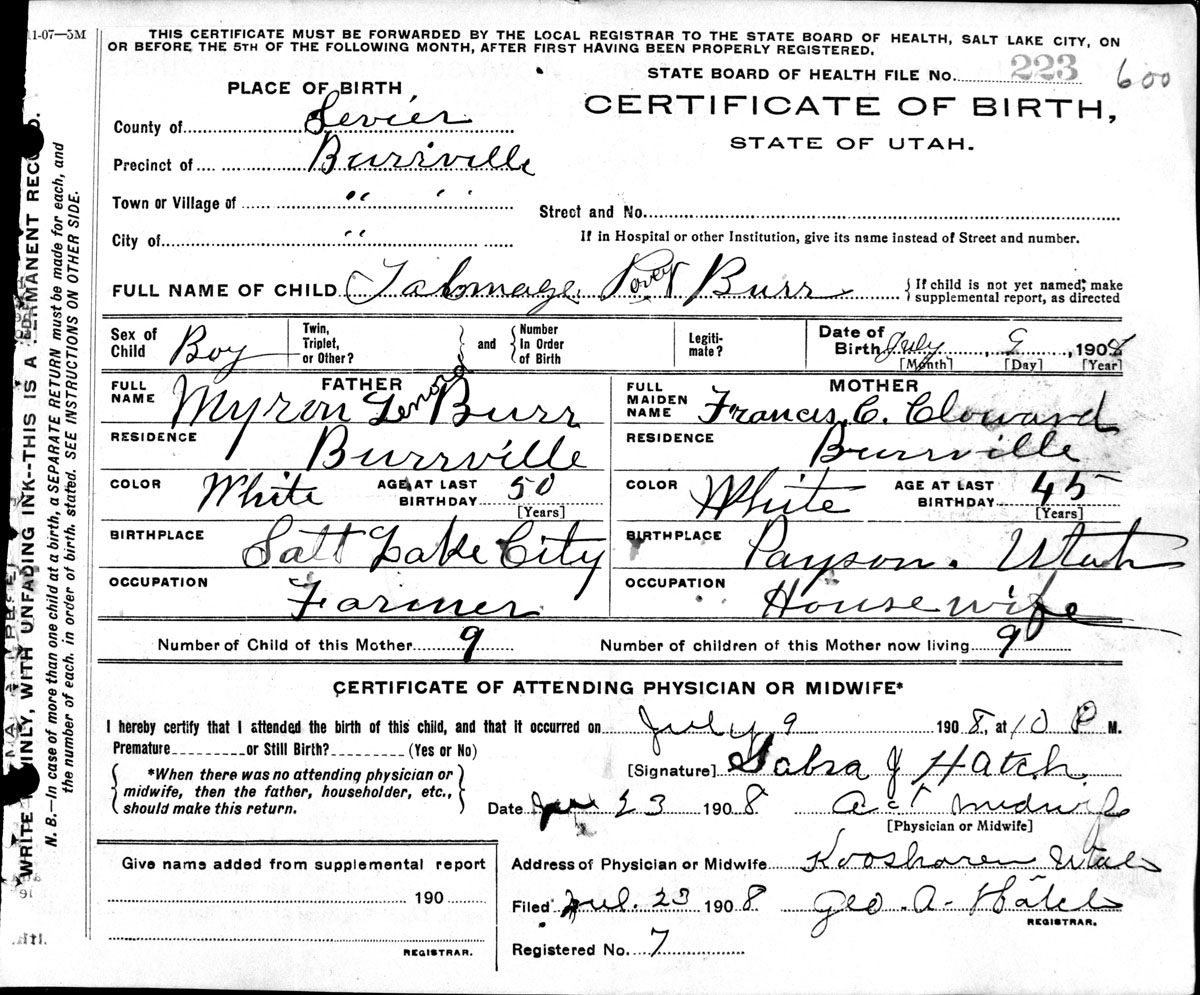 11-07—5M
THIS CERTIFICATE MUST BE FORWARDED BY THE LOCAL REGISTRAR TO THE STATE BOARD OF HEALTH, SALT LAKE CITY, ON
OR BEFORE THE 5TH OF THE FOLLOWING MONTH, AFTER FIRST HAVING BEEN PROPERLY REGISTERED.
STATE BOARD OF HEALTH FILE No. 223 600
PLACE OF BIRTH
CERTIFICATE OF BIRTH,
STATE OF UTAH.
County of Sevier
Precinct of Burrville
Town or Village of " "
Street and No.
City of "
If in Hospital or other Institution, give its name instead of Street and number.
FULL NAME OF CHILD Talmage Burr
If child is not yet named, make
supplemental report, as directed
Sex of Child Boy
Twin, Triplet, or Other?
and
Number In Order of Birth
Legitimate?
Date of Birth July 9, 1908
[Month] [Day] [Year]
FATHER
FULL NAME Myron Lenord Burr
RESIDENCE Burrville
COLOR White AGE AT LAST BIRTHDAY 50
[Years]
BIRTHPLACE Salt Lake City
OCCUPATION Farmer
MOTHER
FULL MAIDEN NAME Francis. C. Cloward
RESIDENCE Burrville
COLOR White AGE AT LAST BIRTHDAY 45
[Years]
BIRTHPLACE Payson. Utah
OCCUPATION House wife
Number of Child of this Mother 9 Number of children of this Mother now living 9
CERTIFICATE OF ATTENDING PHYSICIAN OR MIDWIFE*
I hereby certify that I attended the birth of this child, and that it occurred on July 9 1908, at 10 P M.
Premature or Still Birth? (Yes or No)
*When there was no attending physician or
midwife, then the father, householder, etc.,
should make this return.
[Signature] Sabra J Hatch
Date 23 1908 act midwife
[Physician or Midwife]
Give name added from supplemental report
190
REGISTRAR.
Address of Physician or Midwife Koosharem Utah
Filed Jul. 23 1908 Geo. A. Hatch
REGISTRAR.
Registered No. 7
WRITE PLAINLY, WITH UNFADING INK--THIS IS A PERMANENT RECORD.
N. B.—In case of more than one child at a birth, a SEPARATE RETURN must be made for each, and
the number of each. in order of birth. stated. SEE INSTRUCTIONS ON OTHER SIDE.